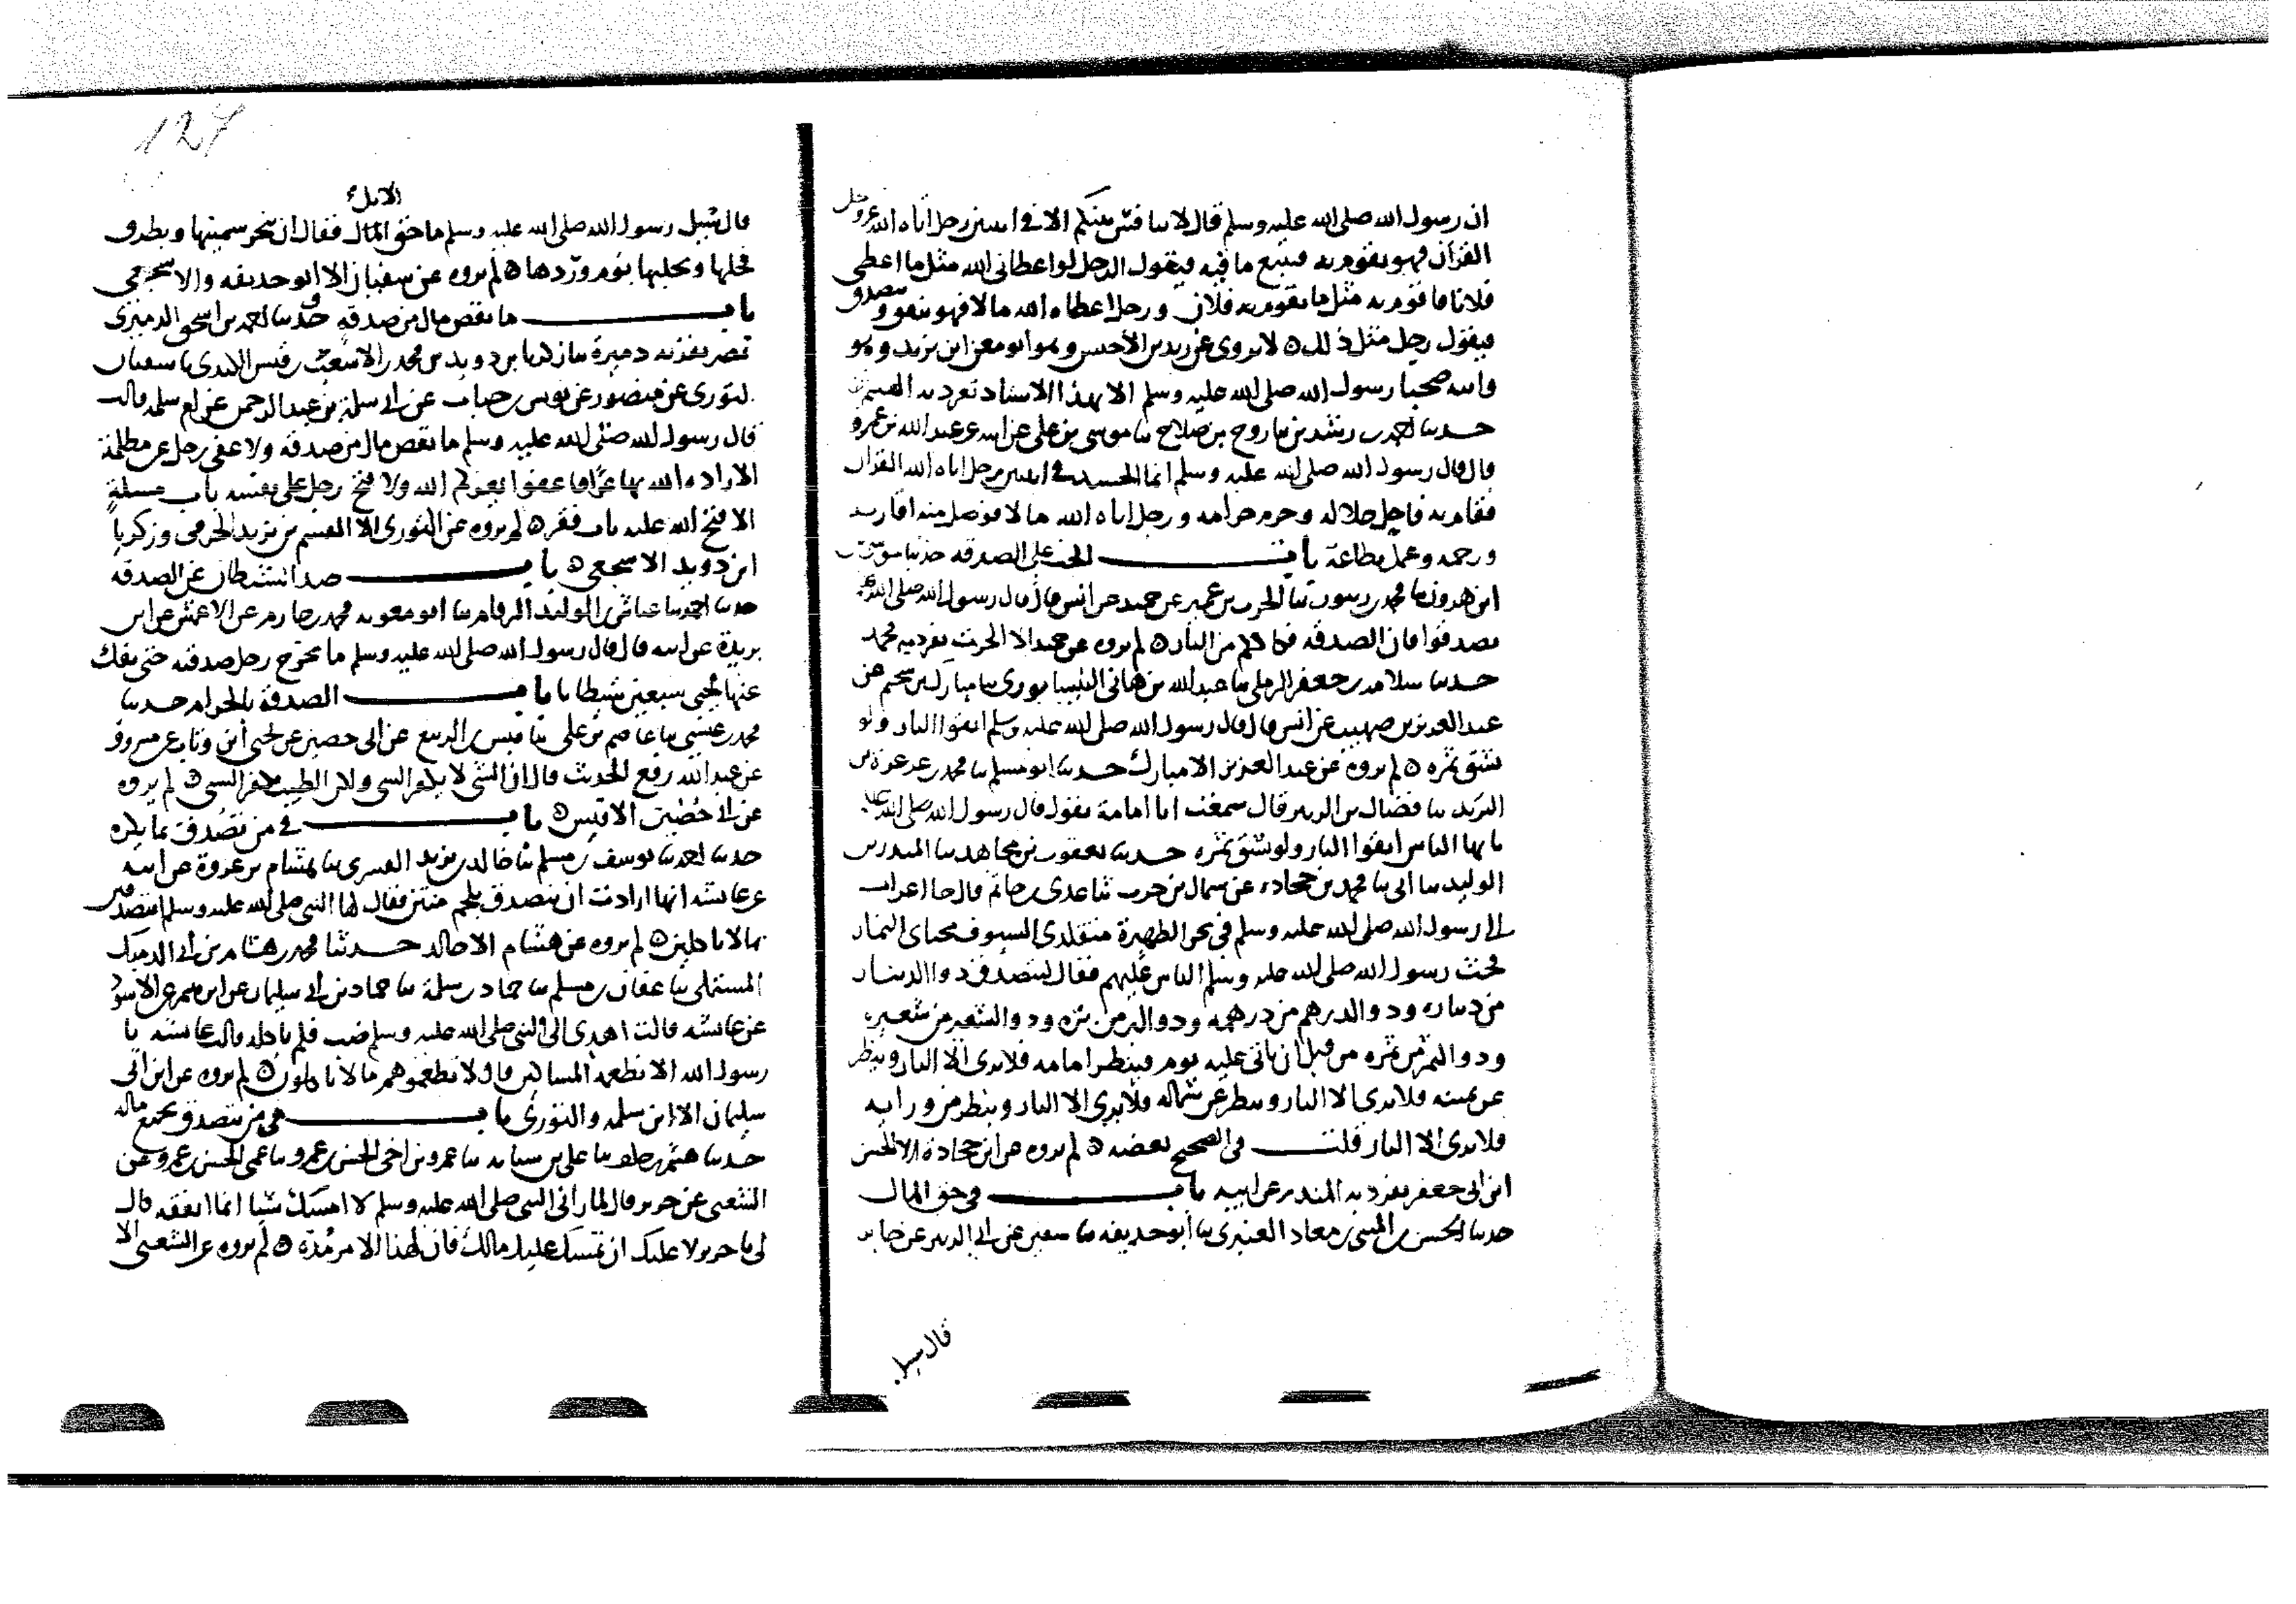 ان رسول الله صلى الله عليه وسلم قال لا تنافس بينكم الا في اثنتين رجل اتاه الله عز وجل
القرآن فهو يقوم به فيتبع ما فيه فيقول الرجل لو اعطاني الله مثل ما اعطى
فلانا فاقوم به مثل ما يقوم به فلان ورجل اعطاه الله مالا فهو ينفق ويتصدق
فيقول رجل مثل ذلك لا يروى عن يزيد بن الاخنس وهو ابو معن ابن يزيد وهو
وابنه صحبا رسول الله صلى الله عليه وسلم الا بهذا الاسناد تفرد به الهيثم
حدثنا احمد بن رشدين ثنا روح بن صلاح ثنا موسى بن علي عن ابيه عن عبد الله بن عمرو
قال قال رسول الله صلى الله عليه وسلم انما الحسد في اثنتين رجل اتاه الله القران
فقام به فاحل حلاله وحرم حرامه ورجل اتاه الله مالا فوصل منه اقاربه
ورحمه وعمل بطاعة باب الحث على الصدقة حدثنا
ابن هرون ثنا محمد ثنا الحرث بن عمير عن حميد عن انس قال قال رسول الله صلى الله
تصدقوا فان الصدقة فكاككم من النار لم يروه عن حميد الا الحرث تفرد به محمد
حدثنا سلامة بن جعفر الرملي ثنا عبد الله بن هاني النيسابوري ثنا مبارك بن سحيم عن
عبد العزيز بن صهيب عن انس قال قال رسول الله صلى الله عليه وسلم اتقوا النار ولو
بشق تمره لم يروه عن عبد العزيز الا مبارك حدثنا ابو مسلم ثنا محمد بن عرعرة بن
البرند ثنا فضال بن الزبير قال سمعت ابا امامة يقول قال رسول الله صلى الله
يايها الناس اتقوا النار ولو بشق تمره حدثنا يعقوب بن مجاهد ثنا المنذر بن
الوليد ثنا ابي ثنا محمد بن جحادة عن سماك بن حرب ثنا عدي بن حاتم قال جا اعراب
الى رسول الله صلى الله عليه وسلم في نحر الظهيرة متقلدي السيوف مجتابي النمار
فحث رسول الله صلى الله عليه وسلم الناس عليهم فقال ليتصدق ذو الدينار
من ديناره وذو الدرهم من درهمه وذو البر من بره وذو الشعير من شعيره
وذو التمر من تمره من قبل ان ياتي عليه يوم فينظر امامه فلا يرى الا النار وينظر
عن يمينه فلا يرى الا النار وينظر عن شماله فلا يرى الا النار وينظر من ورايه
فلا يرى الا النار قلت في الصحيح بعضه لم يروه عن ابن جحادة الا الحسن
ابن ابي جعفر تفرد به المنذر عن ابيه باب في حق المال
حدثنا الحسن بن المثنى بن معاذ العنبري ثنا ابو حذيفه ثنا سفين عن ابي الزبير عن جابر
قال سيل
127
الابل
قال سيل رسول الله صلى الله عليه وسلم ما حق المال فقال ان ينحر سمينها ويطرق
فحلها ويحلبها يوم وردها لم يروه عن سفيان الا ابو حذيفه والاشجعي
باب ما نقص مال من صدقة حدثنا احمد بن اسحق الدميري
بمصر بقرية دميرة ثنا زكريا بن دويد بن محمد بن الاشعث بن قيس الكندي ثنا سفيان
الثوري عن منصور عن يونس بن خباب عن ابي سلمة بن عبد الرحمن عن ام سلمه قالت
قال رسول الله صلى الله عليه وسلم ما نقص مال من صدقة ولا عفى رجل عن مظلمة
الا زاده الله بها عزا فاعفوا يعزكم الله ولا فتح رجل على نفسه باب مسلة
الا فتح الله عليه باب فقر لم يروه عن الثوري الا القسم بن يزيد الجرمي وزكريا
ابن دويد الاشجعي باب صد الشيطان عن الصدقه
حدثنا احمد ثنا عياش بن الوليد الرقام ثنا ابو معويه محمد بن خازم عن الاعمش عن ابن
بريدة عن ابيه قال قال رسول الله صلى الله عليه وسلم ما يخرج رجل صدقته حتى يفك
عنها لحيي سبعين شيطانا باب الصدقة بالحرام حدثنا
محمد بن عيسى ثنا عاصم بن علي ثنا قيس بن الربيع عن ابي حصين عن يحيى ابن وثاب عن مسروق
عن عبد الله رفع الحديث قال ان السي لا يكفر السي ولكن الطيب يكفر السي لم يروه
عن ابي حصين الا قيس باب في من تصدق بما يكره
حدثنا احمد ثنا يوسف بن مسلم ثنا خالد بن يزيد القسري ثنا هشام بن عروة عن ابيه
عن عايشه انها ارادت ان تتصدق بلحم منتن فقال لها النبي صلى الله عليه وسلم اتتصدقين
بما لا تاكلين لم يروه عن هشام الا خالد حدثنا محمد بن هشام بن ابي الدميك
المستملي ثنا عفان بن مسلم ثنا حماد بن سلمة ثنا حماد بن ابي سليمان عن ابرهيم عن الاسود
عن عايشه قالت اهدي الى النبي صلى الله عليه وسلم ضب فلم ياكله قالت عايشه يا
رسول الله الا نطعمه المساكين قال لا تطعموهم ما لا تاكلون لم يروه عن ابن ابي
سليمان الا ابن سلمه والثوري باب في من تصدق بجميع ماله
حدثنا هيثم بن خلف ثنا علي بن ثنا عمرو بن اخي الحسن بن عمرو ثنا عمي الحسن بن عمرو عن
الشعبي عن جرير قال لما راني النبي صلى الله عليه وسلم لا امسك شيا انما انفقه قال
لي يا جرير لا عليك ان تمسك عليك مالك فان لهذا الامر مدة لم يروه عن الشعبي الا